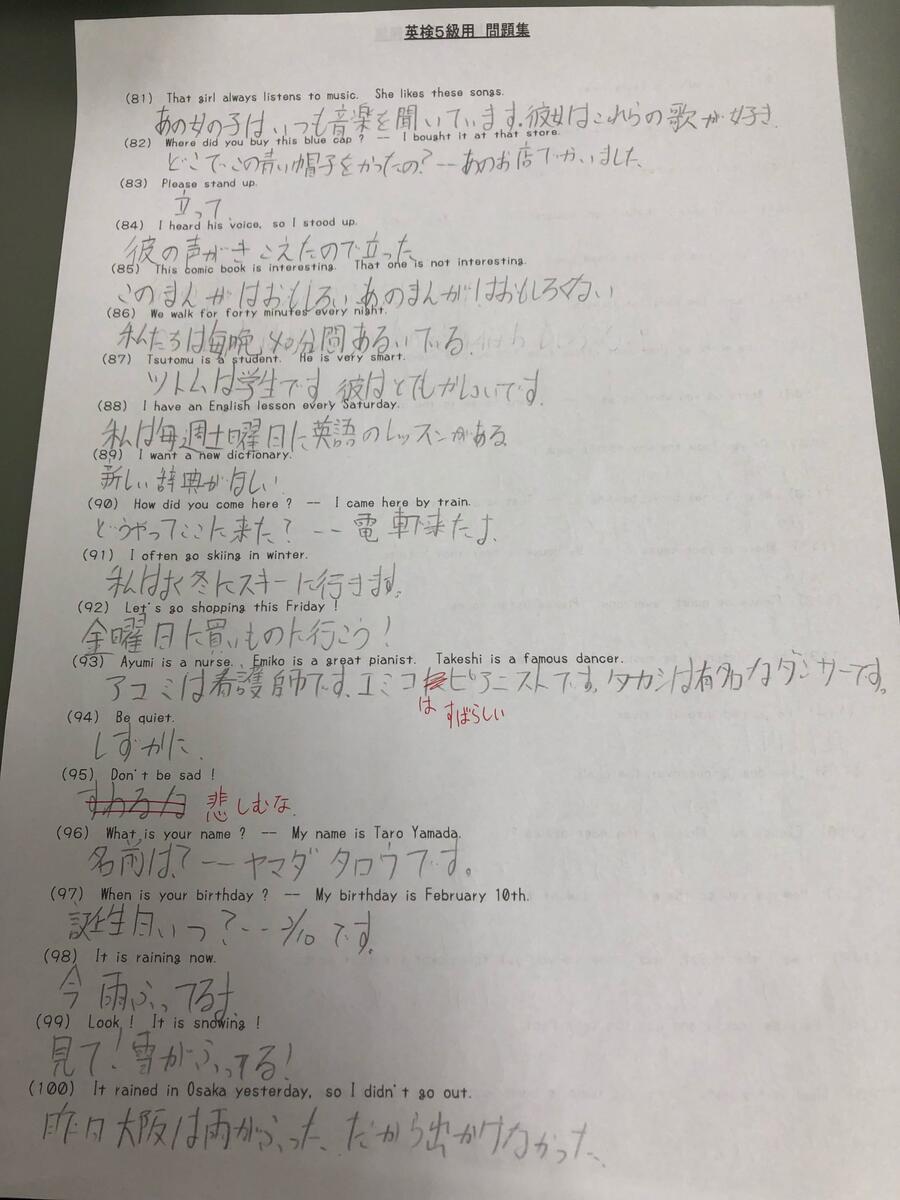 英検5級用 問題集
(81) That girl always listens to music. She likes these songs.
あの女の子はいつも音楽を聞いています。彼女はこれらの歌が好き
(82) Where did you buy this blue cap ? -- I bought it at that store.
どこで、この青い帽子をかったの？--あのお店でかいました。
(83) Please stand up.
立って
(84) I heard his voice, so I stood up.
彼の声がきこえたので立った。
(85) This comic book is interesting. That one is not interesting.
このまんがはおもしろい。あのまんがはおもしろくない
(86) We walk for forty minutes every night.
私たちは毎晩、40分間あるいている。
(87) Tsutomu is a student. He is very smart.
ツトムは学生です。彼はとてもかしこいです。
(88) I have an English lesson every Saturday.
私は毎週土曜日に英語のレッスンがある
(89) I want a new dictionary.
新しい辞典がほしい
(90) How did you come here ? -- I came here by train.
どうやってここに来た？--電車で来たよ。
(91) I often go skiing in winter.
私はよく冬にスキーに行きます。
(92) Let's go shopping this Friday !
金曜日に買いものに行こう！
(93) Ayumi is a nurse. Emiko is a great pianist. Takeshi is a famous dancer.
アユミは看護師です。エミコ ピアニストです。タカシは有名なダンサーです。
は すばらしい
(94) Be quiet.
しずかに。
(95) Don't be sad !
すわるな 悲しむな。
(96) What is your name ? -- My name is Taro Yamada.
名前は？--ヤマダ タロウです。
(97) When is your birthday ? -- My birthday is February 10th.
誕生日いつ？--2/10です。
(98) It is raining now.
今雨ふってるよ
(99) Look ! It is snowing !
見て！雪がふってる！
(100) It rained in Osaka yesterday, so I didn't go out.
昨日大阪は雨がふった、だから出かけなかった。